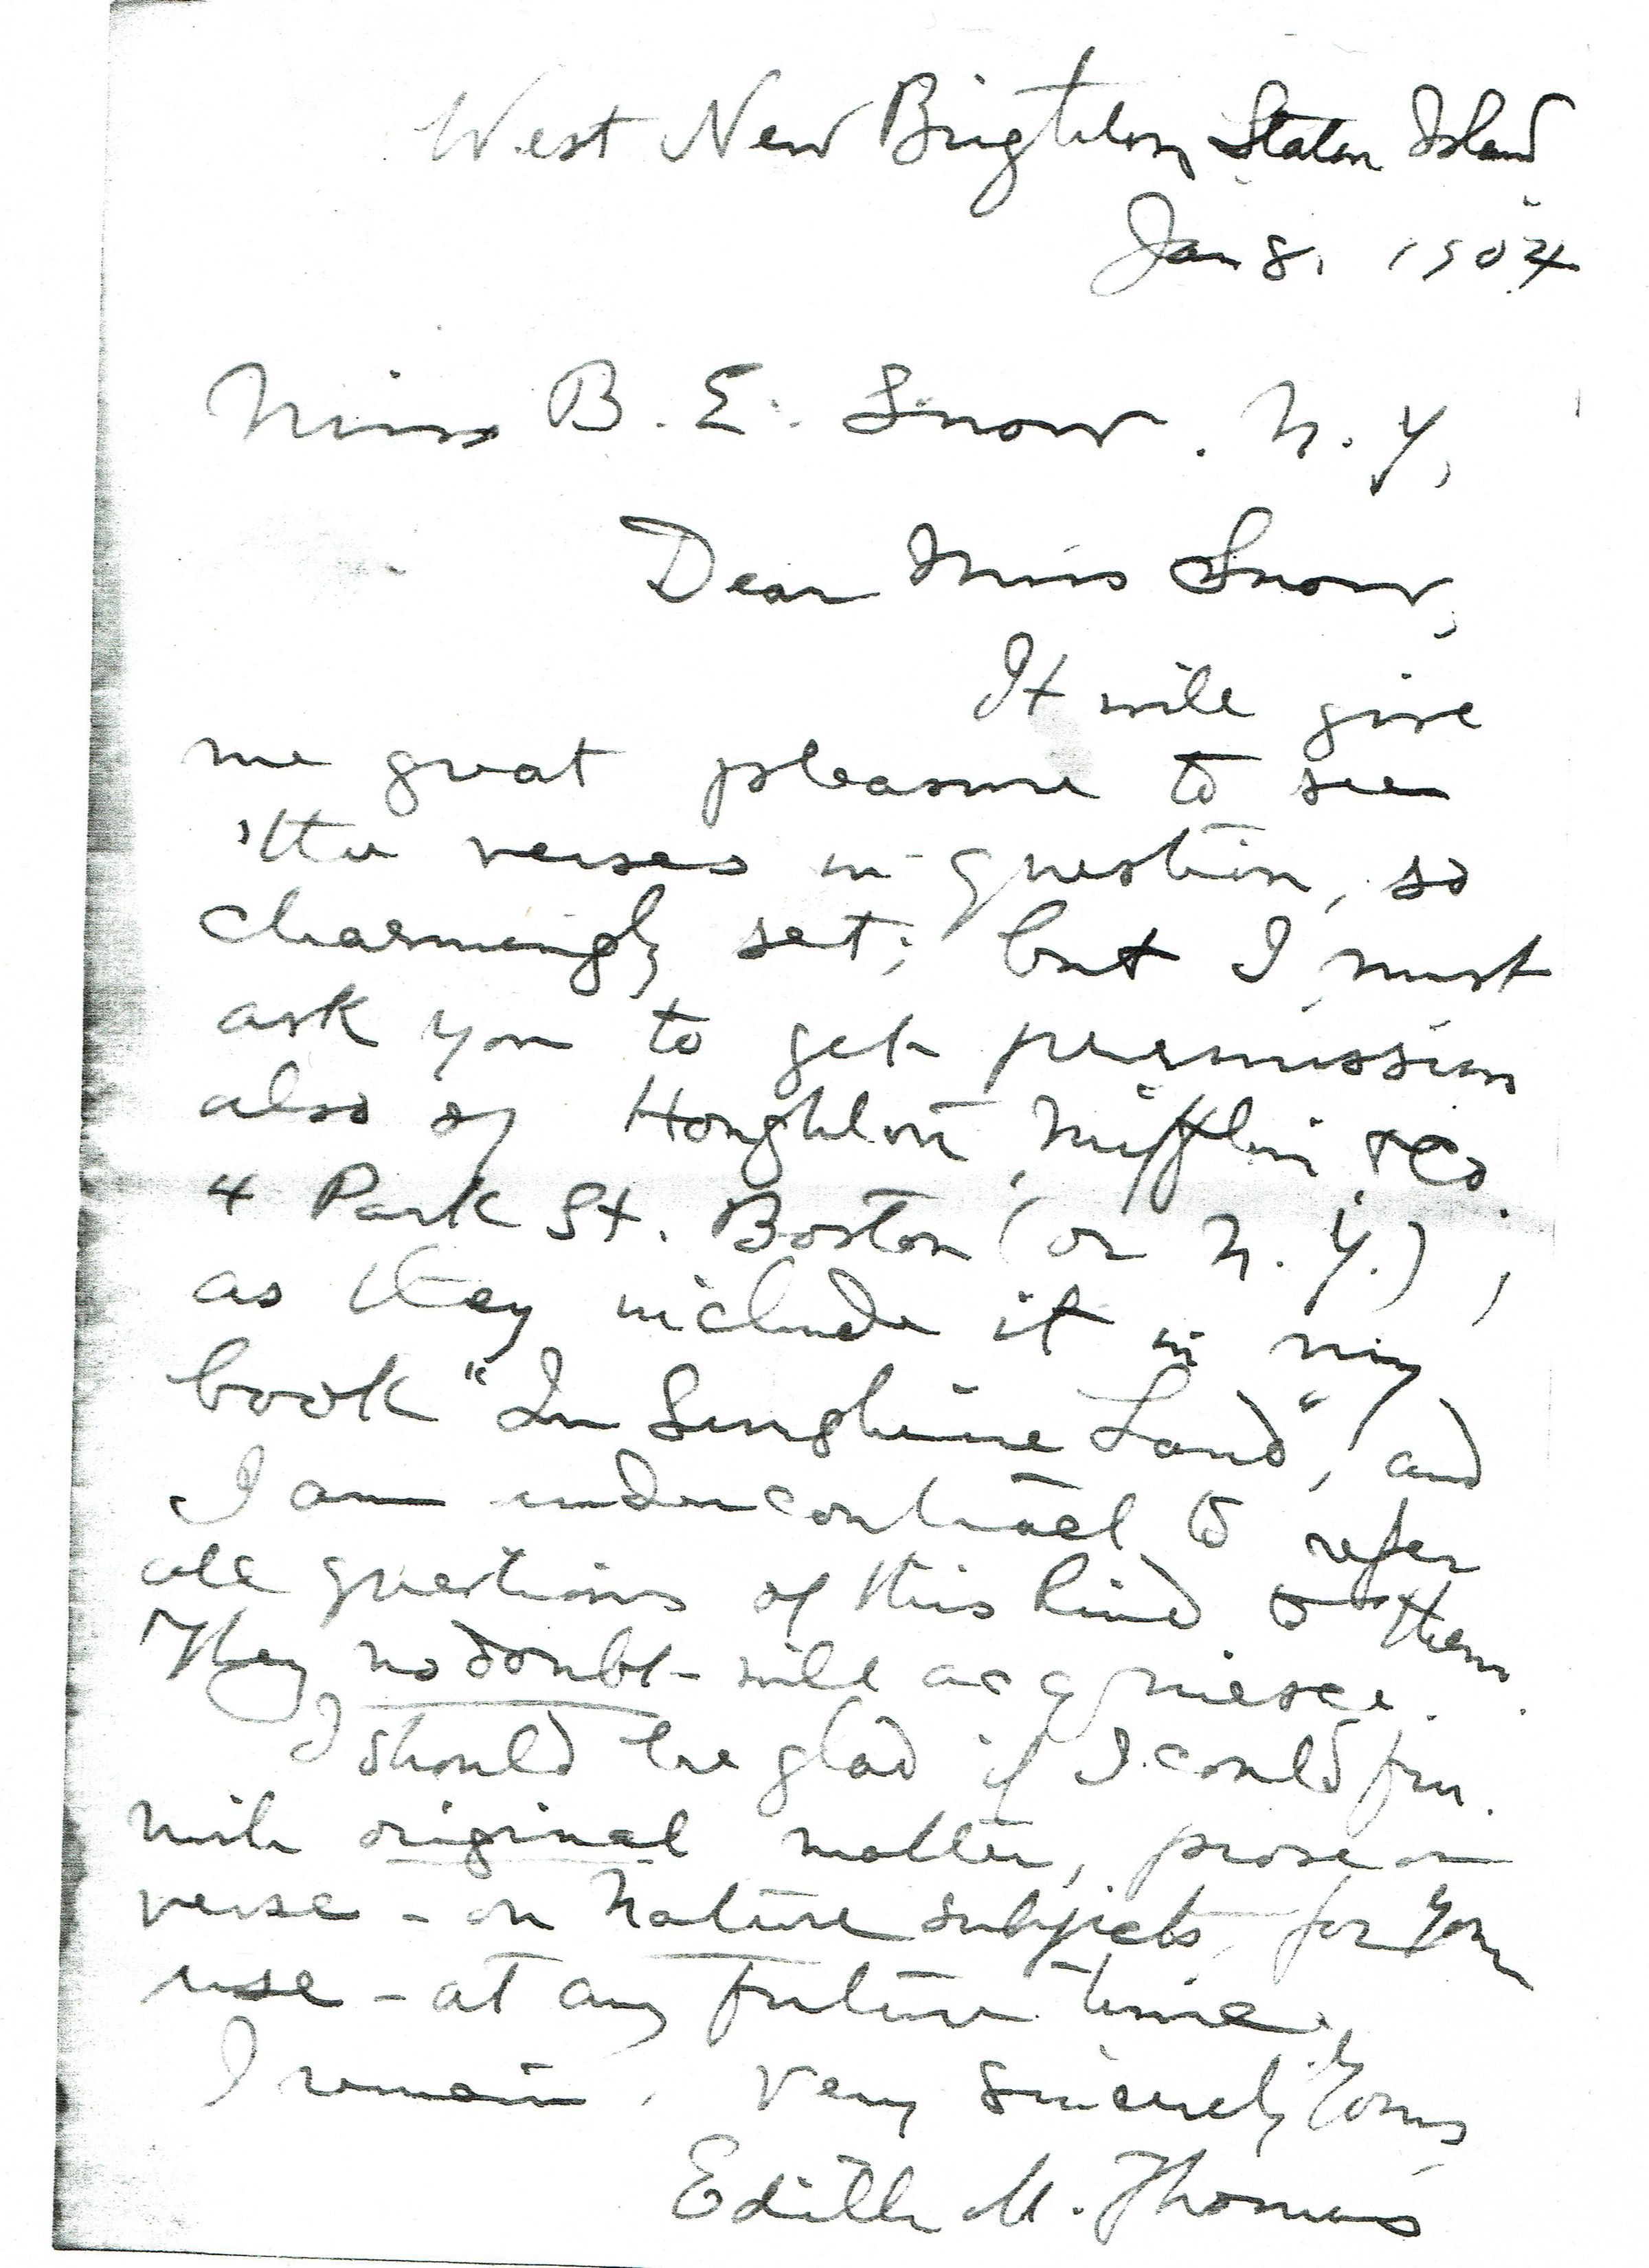 West New Brighton, Staten Island
Jan 8, 1904
Miss B. E. Snow. N. Y,
Dear Miss Snow,
It will give
me great pleasure to see
the verses in question, so
charmingly set; but I must
ask you to get permission
also of Houghton, Mifflin & Co.
4 Park St. Boston (or N. Y.),
as they include it in my
book "In Sunshine Land", and
I am under contract to refer
all questions of this kind to them.
They no doubt will acquiesce.
I should be glad if I could fur-
nish original matter, prose or
verse - on Nature subjects, for your
use - at any future time.
I remain, Very Sincerely Yours,
Edith M. Thomas